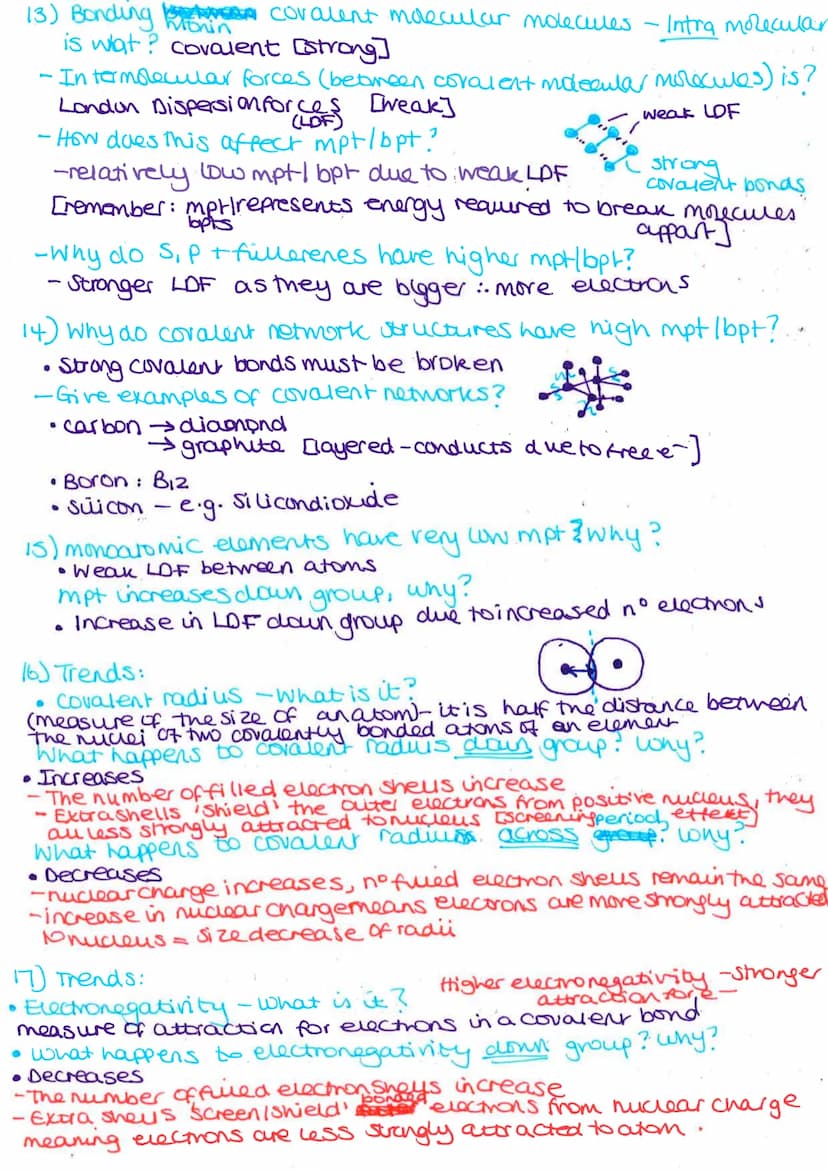 13) Bonding within covalent molecular molecules - Intra molecular
is wat? covalent [strong]
- Intermolecular forces (between covalent molecular molecules) is?
London Dispersion forces [weak]
(LDF)
weak LDF
- How does this affect mpt/bpt?
- relatively low mpt/bpt due to weak LDF
strong
covalent bonds
[remember: mpt/represents energy required to break molecules
bpts
appart]
- Why do S, P + fullerenes have higher mpt/bpt?
- Stronger LDF as they are bigger ∴ more electrons
14) Why do covalent network structures have high mpt/bpt?
• Strong covalent bonds must be broken
- Give examples of covalent networks?
• carbon → diamond
→ graphite [layered - conducts due to free e-]
• Boron: B12
• Silicon - e.g. Silicondioxide
15) monoatomic elements have very low mpt? Why?
• Weak LDF between atoms
mpt increases down group, why?
• Increase in LDF down group due to increased nº electrons
16) Trends:
• covalent radius - What is it?
(measure of the size of an atom) - it is half the distance between
the nuclei of two covalently bonded atoms of an element
What happens to covalent radius down group? Why?
• Increases
- The number of filled electron shells increase
- Extra shells 'shield' the outer electrons from positive nucleus, they
au less strongly attracted to nucleus [screening effect]
What happens to covalent radius across period? Why?
• Decreases
- nuclear charge increases, nº filled electron shells remain the same
- increase in nuclear charge means electrons are more strongly attracted
to nucleus = size decrease of radii
17) Trends:
Higher electronegativity - stronger
attraction force
• Electronegativity - What is it?
measure of attraction for electrons in a covalent bond
• What happens to electronegativity down group? Why?
• Decreases
- The number of filled electron shells increase
- Extra shells 'screen/shield' bonded electrons from nuclear charge
meaning electrons are less strongly attracted to atom.